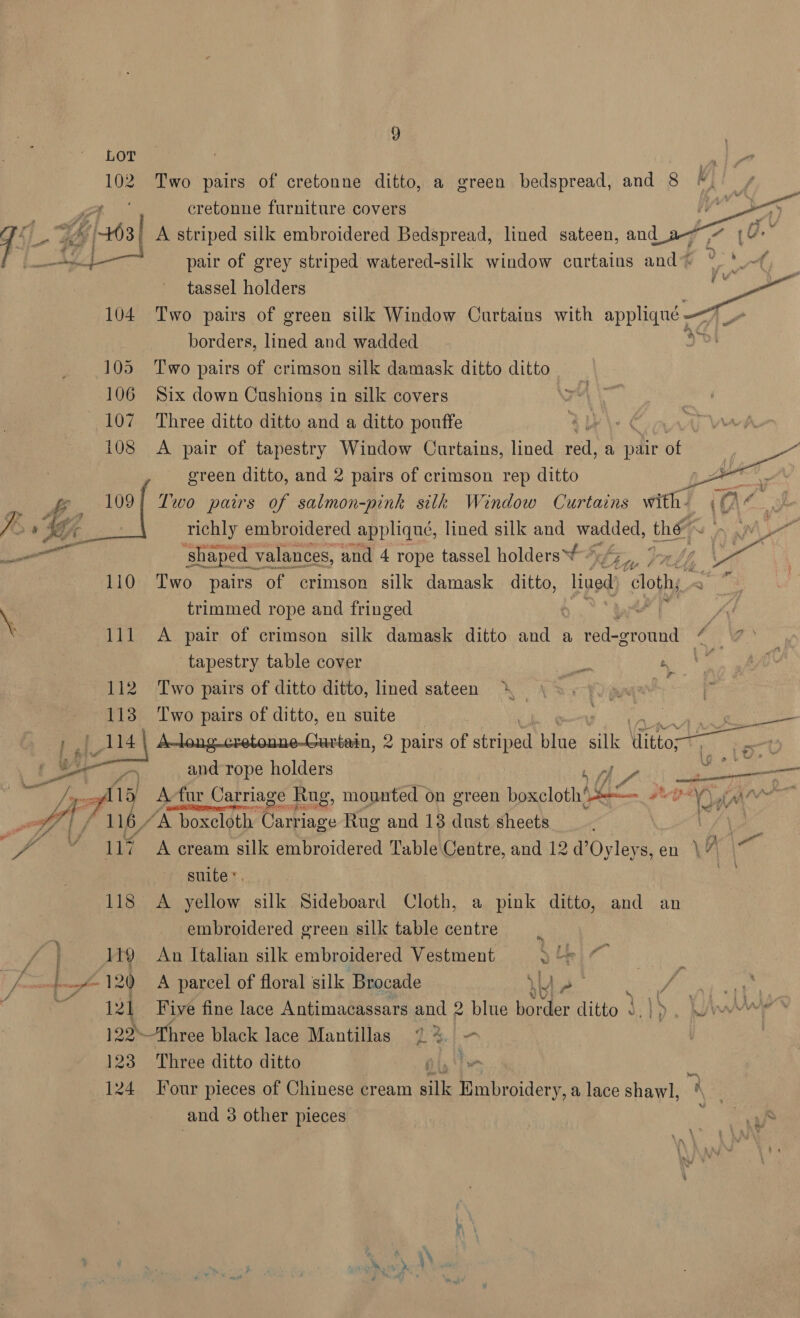 9
LOT
102 Two pairs of cretonne ditto, a green bedspread, and 8
cretonne furniture covers
103 A striped silk embroidered Bedspread, lined sateen, and a
pair of grey striped watered-silk window curtains and
tassel holders
104 Two pairs of green silk Window Curtains with appliqué
borders, lined and wadded
105 Two pairs of crimson silk damask ditto ditto
106 Six down Cushions in silk covers
107 Three ditto ditto and a ditto pouffe
108 A pair of tapestry Window Curtains, lined red, a pair of
green ditto, and 2 pairs of crimson rep ditto
109 Two pairs of salmon-pink silk Window Curtains with
richly embroidered appliqué, lined silk and wadded, the
shaped valances, and 4 rope tassel holders
110 Two pairs of crimson silk damask ditto, lined cloth,
trimmed rope and fringed
111 A pair of crimson silk damask ditto and a red-ground
tapestry table cover
112 Two pairs of ditto ditto, lined sateen
113 Two pairs of ditto, en suite
114 A long cretonne Curtain, 2 pairs of striped blue silk ditto,
and rope holders
115 A fur Carriage Rug, mounted on green boxcloth
116 A boxcloth Carriage Rug and 13 dust sheets
117 A cream silk embroidered Table Centre, and 12 d'Oyleys, en
suite
118 A yellow silk Sideboard Cloth, a pink ditto, and an
embroidered green silk table centre
119 An Italian silk embroidered Vestment
120 A parcel of floral silk Brocade
121 Five fine lace Antimacassars and 2 blue border ditto
122 Three black lace Mantillas
123 Three ditto ditto
124 Four pieces of Chinese cream silk Embroidery, a lace shawl,
and 3 other pieces